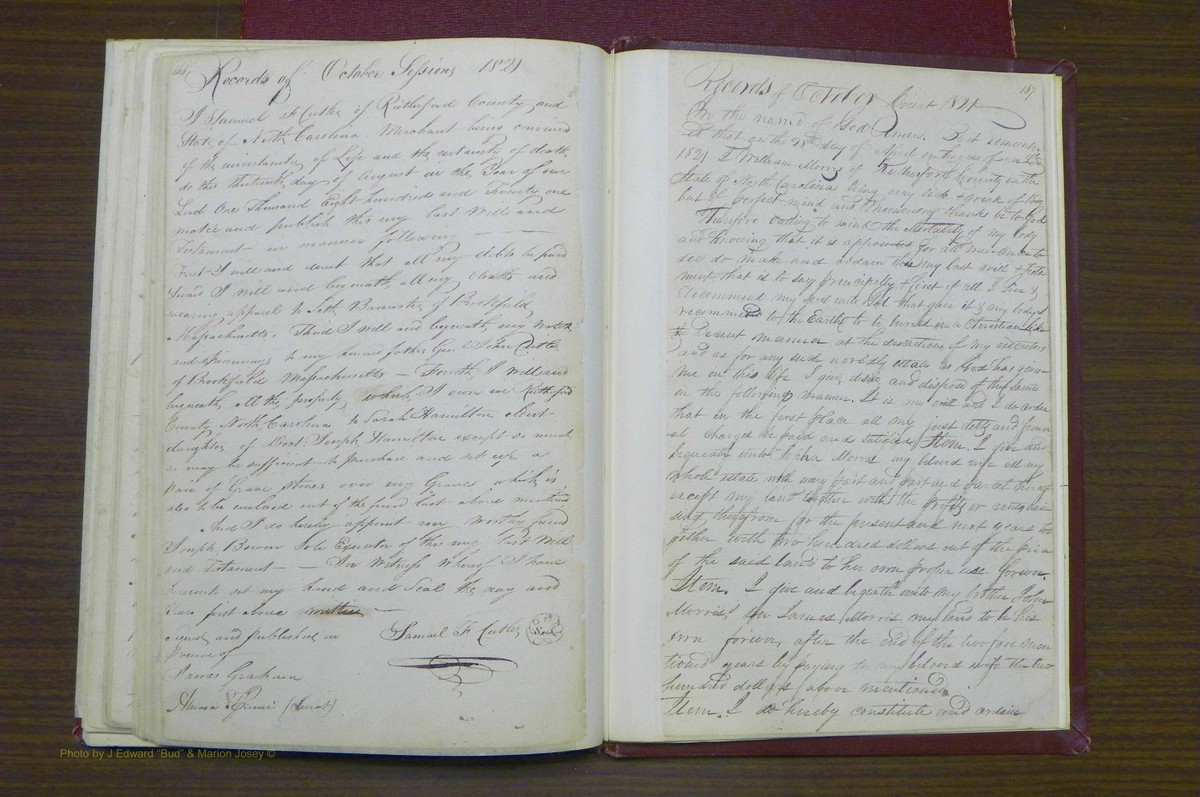 166
Records of October Sessions 1821
I Samuel F. Cutler of Rutherford County and
State of North Carolina Merchant being convinced
of the uncertainty of Life and the certainty of death
do this thirteenth day of August in the Year of our
Lord One Thousand Eight hundred and twenty one
make and publish this my last Will and
Testament in manner following
First I will and direct that all my debts be paid
Second I will and bequeath all my cloaths and
wearing apparel to Seth Banister of Brookfield
Massachusetts. Third I will and bequeath my watch
to my honored father Genl John Cutler
of Brookfield Massachusetts — Fourth I will and
bequeath all the property which I own in Rutherford
County North Carolina to Sarah Hamilton eldest
daughter of Doct. Joseph Hamilton except so much
as may be sufficient to purchase and set up a
pair of Grave stones over my Grave which is
also to be enclosed out of the fund last above mentioned
And I do hereby appoint my worthy friend
Joseph Bowen Sole Executor of this my last Will
and Testament — In Witness whereof I have
hereunto set my hand and Seal the day and
Year first above written
signed and published in
Presence of
Samuel F. Cutler Seal
James Graham
(Jurat)
167
Records of October Court 1821
In the name of God Amen. Be it remember
ed that on the day of April in the year of our Lord
1821 I William Morris of Rutherford County in the
State of North Carolina being very sick & weak of body
but of perfect mind and Memory thank be to God
Therefore calling to mind the Mortality of my body
and knowing that it is appointed for all men once to
die do make and ordain this my last will & testa
ment that is to say principally & first of all I Give &
Recommend my soul unto God that gave it & my body I
recommend to the Earth to be buried in a Christian like
& Decent manner at the discretion of my executors
and as for any such worldly estate as God has given
me in this life I give, devise and dispose of the same
in the following manner. It is my will and I do order
that in the first place all my just debts and funer
al charges be paid and satisfied Item. I give and
bequeath unto Morris my beloved wife all my
whole estate with every part and part and parcel thereof
except my land together with the profits or rents ari
sing therefrom for the present and next years to
gether with two hundred dollars out of the price
of the said land to her own proper use forever.
Item. I give and bequeath unto my brother John
Morris's son James Morris my land to be his
own forever, after the end of the two fore men
tioned years by paying to my beloved wife the two
hundred dollars above mentioned
Item. I do hereby constitute and ordain
Photo by J Edward "Bud" & Marion Josey ©